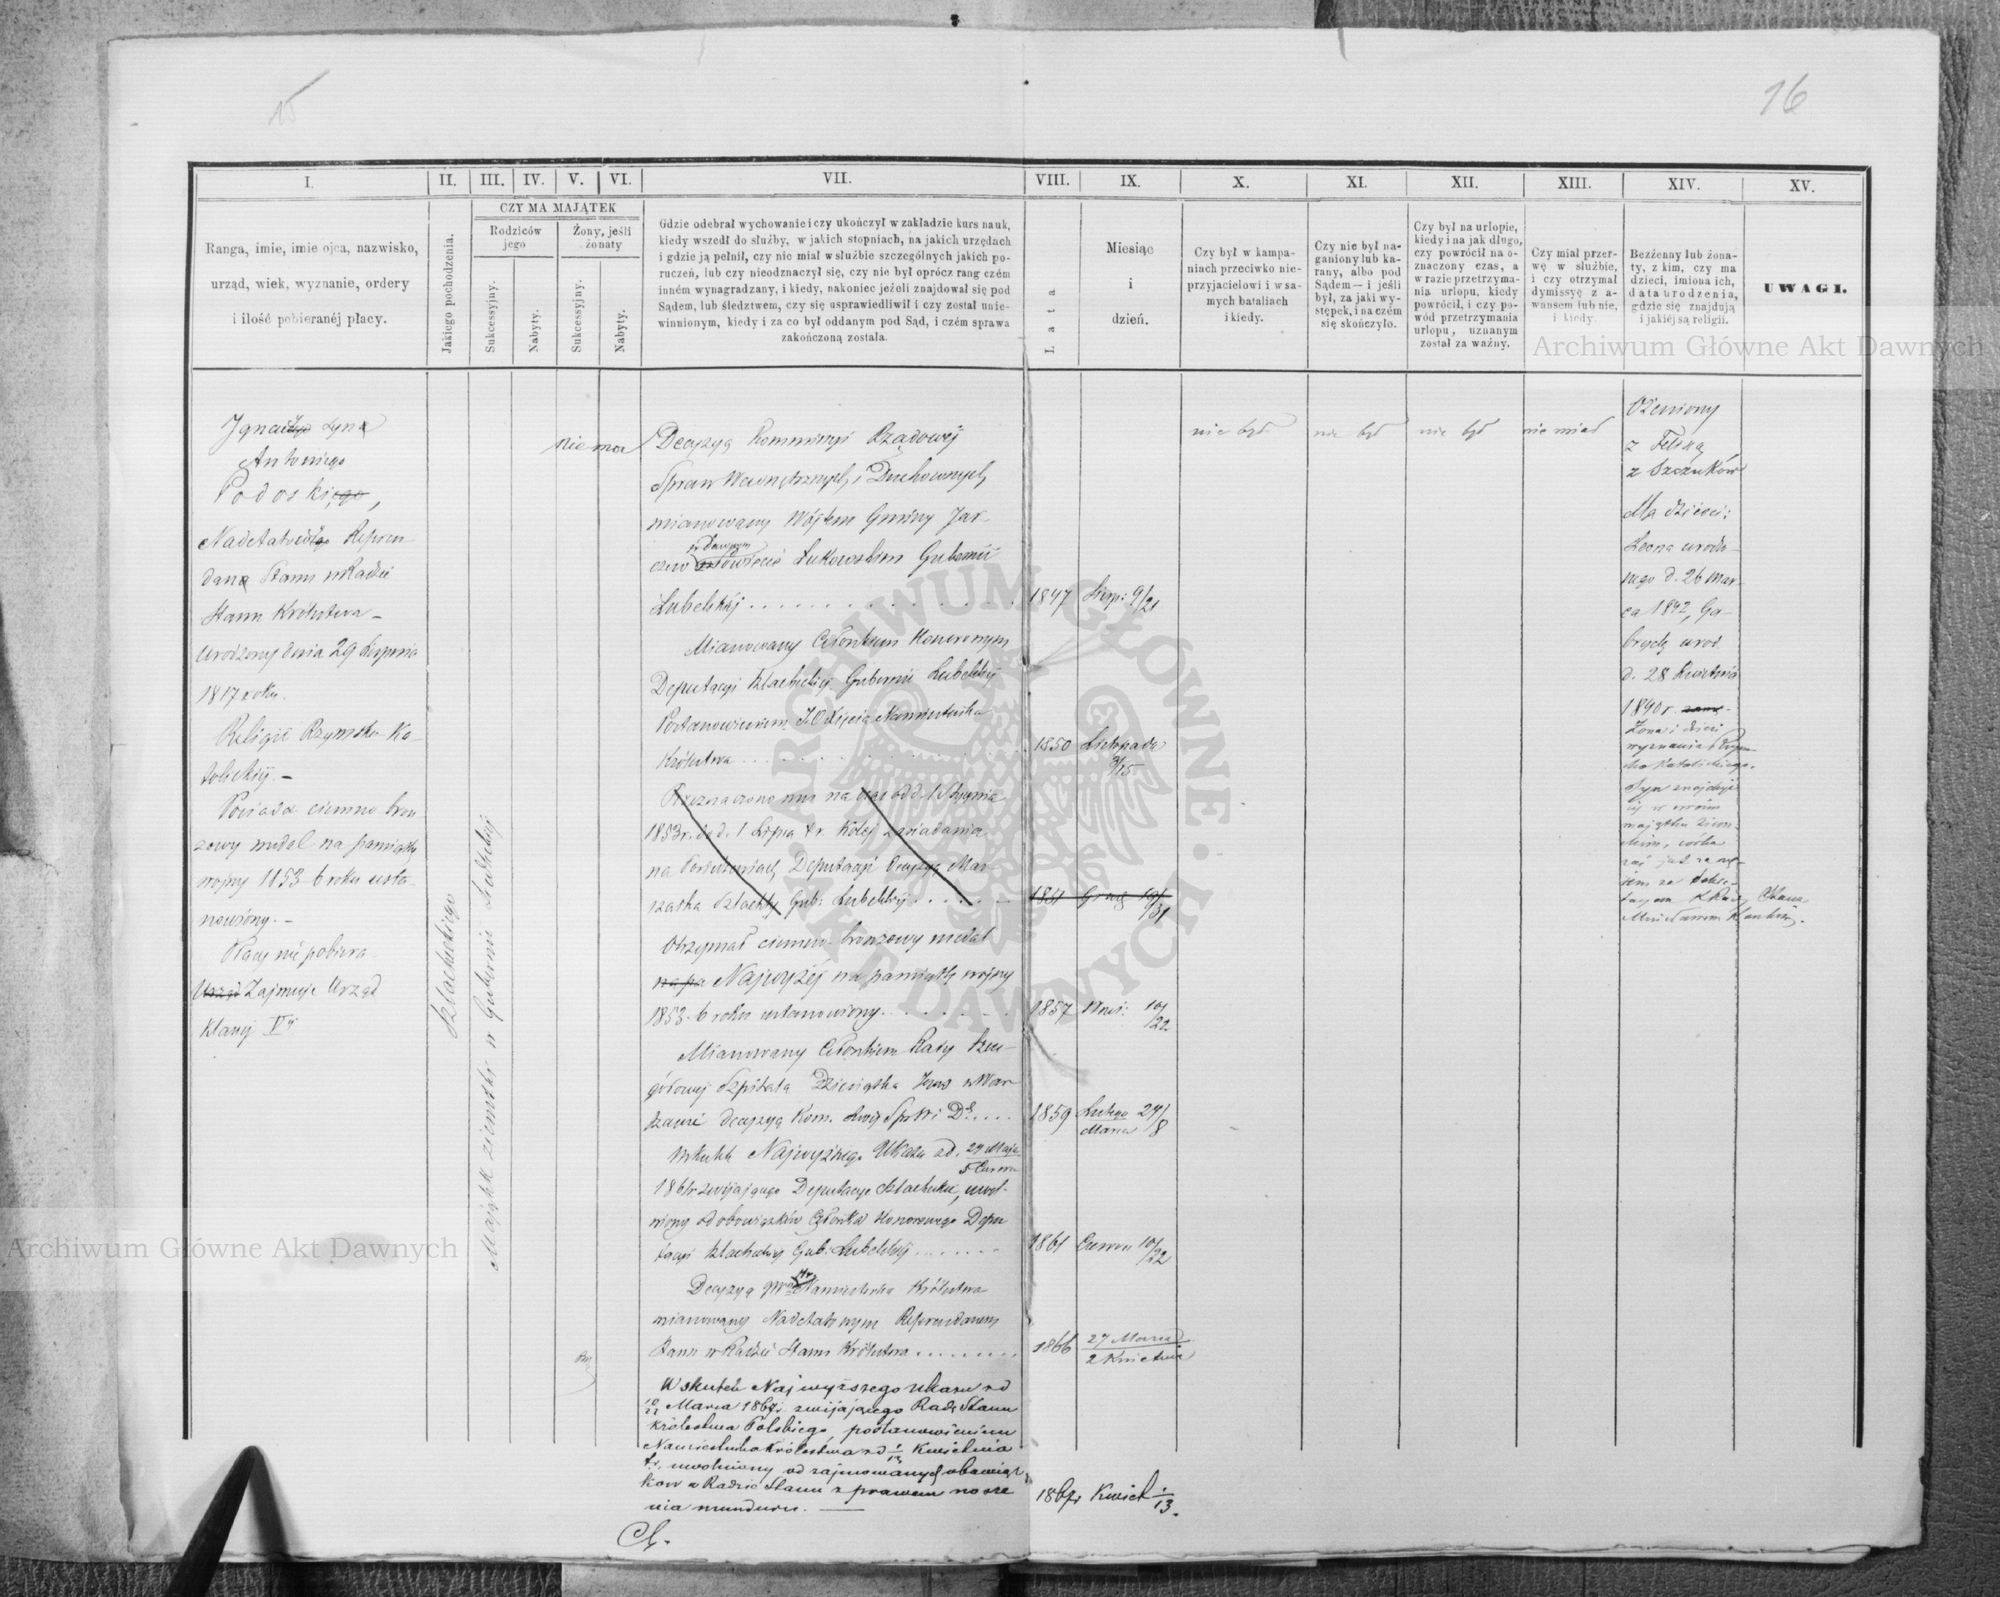 15
16
I.
II.
III.
IV.
V.
VI.
VII.
VIII.
IX.
X.
XI.
XII.
XIII.
XIV.
XV.
Ranga, imie, imie ojca, nazwisko,
urząd, wiek, wyznanie, ordery
i ilość pobieranéj płacy.
Jakiego pochodzenia.
CZY MA MAJĄTEK
Rodziców
jego
Żony, jeśli
żonaty
Sukcessyjny.
Nabyty.
Sukcessyjny.
Nabyty.
Gdzie odebrał wychowanie i czy ukończył w zakładzie kurs nauk,
kiedy wszedł do służby, w jakich stopniach, na jakich urzędach
i gdzie ją pełnił, czy nie miał w służbie szczególnych jakich po-
ruczeń, lub czy nieodznaczył się, czy nie był oprócz rang czém
inném wynagradzany, i kiedy, nakoniec jeżeli znajdował się pod
Sądem, lub śledztwem, czy się usprawiedliwił i czy został unie-
winnionym, kiedy i za co był oddanym pod Sąd, i czém sprawa
zakończoną została.
Lata
Miesiąc
i
dzień.
Czy był w kampa-
niach przeciwko nie-
przyjacielowi i w sa-
mych bataliach
i kiedy.
Czy nie był na-
ganiony lub ka-
rany, albo pod
Sądem — i jeśli
był, za jaki wy-
stępek, i na czém
się skończyło.
Czy był na urlopie,
kiedy i na jak długo,
czy powrócił na o-
znaczony czas, a
w razie przetrzyma-
nia urlopu, kiedy
powrócił, i czy po-
wód przetrzymania
urlopu, uznanym
został za ważny.
Czy miał przer-
wę w służbie,
i czy otrzymał
dymissyę z a-
wansem lub nie,
i kiedy.
Bezżenny lub żona-
ty, z kim, czy ma
dzieci, imiona ich,
data urodzenia,
gdzie się znajdują
i jakiéj są religii.
UWAGI.
Ignacego syna
Antoniego
Podoskiego,
Nadetatowego Referen-
darza Stanu w Radzie
Stanu Królestwa –
urodzony dnia 29 Sierpnia
1817 roku.
Religii Rzymsko Ka-
tolickiéj. –
Posiada ciemno bron-
zowy medal na pamiątkę
wojny 1853–6 roku usta-
nowiony. –
Płacy nie pobiera
Urząd Zajmuje Urząd
Klassy V
Szlacheckiego
Majątek ziemski w Gubernii Lubelskiéj
nie ma
Decyzyą Kommissyi Rządowéj
Spraw Wewnętrznych i Duchownych
mianowany Wójtem Gminy Jar-
czew w dawnym Powiecie Łukowskim Gubernii
Lubelskiéj
1847 Sierp: 9/21
Mianowany Członkiem Honorowym
Deputacyi Szlacheckiéj Gubernii Lubelskiéj
Postanowieniem JO Księcia Namiestnika
Królestwa
1850 Listopada 3/15
Przeznaczono mu na czas od d. 1 Stycznia
1853 r. do d. 1 Lipca t. r. Koléj zasiadania
na Posiedzeniach Deputacyi Decyzyą Mar-
szałka Szlachty Gub: Lubelskiéj
1851 Grud 19/31
Otrzymał ciemno bronzowy medal
na pa Najwyżéj na pamiątkę wojny
1853–6 roku ustanowiony
1857 Wrześ: 10/22
Mianowany Członkiem Rady Szcze-
gółowéj Szpitala Dzieciątka Jezus w War-
szawie decyzyą Kom. Rząd. Sp. W. i D.
1859 Lutego 24/8 Marca
Wskutek Najwyższego Ukazu z d. 24 Maja / 5 Czerwca
1861 r. zwijającego Deputacye Szlacheckie, uwol-
niony od obowiązków Członka Honorowego Depu-
tacyi Szlacheckiéj Gub: Lubelskiéj
1861 Czerwca 10/22
Decyzyą Namiestnika Królestwa
mianowany Nadetatowym Referendarzem
Stanu w Radzie Stanu Królestwa
1866 27 Marca / 2 Kwietnia
Wskutek Najwyższego Ukazu z d
10/22 Marca 1867 r. zwijającego Radę Stanu
Królestwa Polskiego, postanowieniem
Namiestnika Królestwa z d 1/13 Kwietnia
t. r. uwolniony od zajmowanych obowiąz-
ków w Radzie Stanu z prawem nosze-
nia munduru. —
1867 r. Kwiet 1/13.
nie był
nie był
nie był
nie miał
Ożeniony
z Felixą
z Szczuków
Ma dzieci:
Leona urodzo-
nego d. 26 Mar-
ca 1842, Ga-
bryelę urod.
d. 28 Kwietnia
1840 r.
Żona i dzieci
wyznania Rzym-
sko Katolickiego.
Syn znajduje
się w swoim
majątku ziem-
skim, córka
zaś jest za mę-
żem
Archiwum Główne Akt Dawnych
Archiwum Główne Akt Dawnych
ARCHIWUM GŁÓWNE AKT DAWNYCH